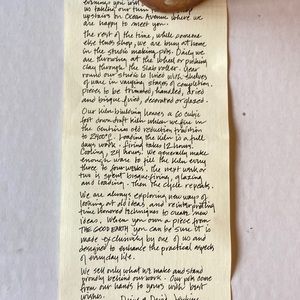 evenings you will
us taking our turn
upstairs on Ocean Avenue where we
are happy to meet you.
The rest of the time, while someone
else tends shop, we are busy at home
in the studio making pots. Daily we
are throwing at the wheel or pushing
clay through the slab roller. Year
round our studio is lined with shelves
of ware in varying stages of completion.
Pieces to be trimmed, handled, dried
and bisque-fired, decorated or glazed.
Our kiln building houses a 60 cubic
foot down draft kiln which we fire in
the centuries old reduction tradition
to 2400°F. Loading the kiln is a full
days work - firing takes 12 hours.
Cooling, 24 hours. We generally make
enough ware to fill the kiln every
three to four weeks. The next week or
two is spent bisque-firing, glazing
and loading. Then the cycle repeats.
We are always exploring new ways of
looking at old ideas and reinterpreting
time honored techniques to create new
ideas. When you own a piece from
THE GOOD EARTH you can be sure it is
made exclusively by one of us and
designed to enhance the practical aspects
of everyday life.
We sell only what we make and stand
proudly behind our work. Our pots come
from our hands to yours with best
wishes.
David